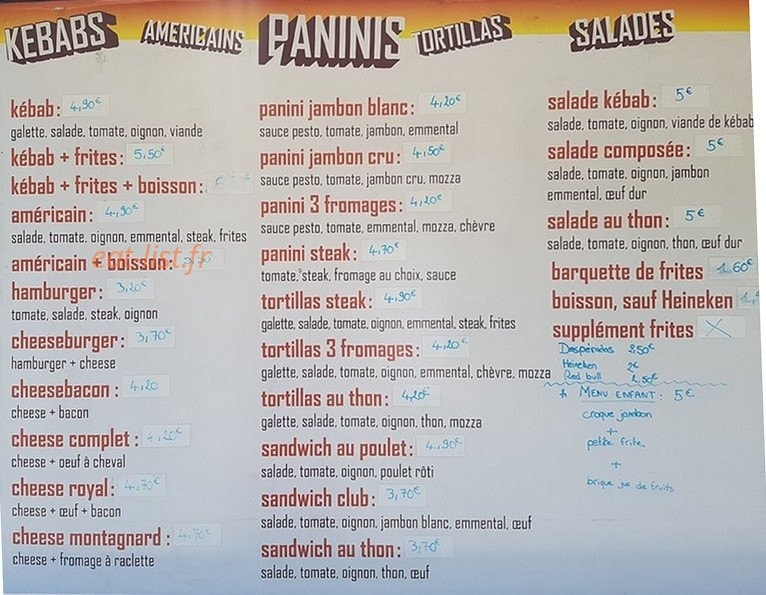 KEBABS AMERICAINS PANINIS TORTILLAS SALADES
kébab: 4,90€
galette, salade, tomate, oignon, viande
kébab + frites: 5,50€
kébab + frites + boisson:
américain: 4,90€
salade, tomate, oignon, emmental, steak, frites
américain + boisson:
eat-list.fr
hamburger: 3,20€
tomate, salade, steak, oignon
cheeseburger: 3,70€
hamburger + cheese
cheesebacon: 4,20
cheese + bacon
cheese complet: 4,20€
cheese + oeuf à cheval
cheese royal: 4,70€
cheese + œuf + bacon
cheese montagnard:
cheese + fromage à raclette
panini jambon blanc: 4,20€
sauce pesto, tomate, jambon, emmental
panini jambon cru: 4,50€
sauce pesto, tomate, jambon cru, mozza
panini 3 fromages: 4,20€
sauce pesto, tomate, emmental, mozza, chèvre
panini steak: 4,70€
tomate, steak, fromage au choix, sauce
tortillas steak: 4,90€
galette, salade, tomate, oignon, emmental, steak, frites
tortillas 3 fromages: 4,20€
galette, salade, tomate, oignon, emmental, chèvre, mozza
tortillas au thon: 4,20€
galette, salade, tomate, oignon, thon, mozza
sandwich au poulet: 4,90€
salade, tomate, oignon, poulet rôti
sandwich club: 3,70€
salade, tomate, oignon, jambon blanc, emmental, œuf
sandwich au thon: 3,70€
salade, tomate, oignon, thon, œuf
salade kébab: 5€
salade, tomate, oignon, viande de kébab
salade composée: 5€
salade, tomate, oignon, jambon
emmental, œuf dur
salade au thon: 5€
salade, tomate, oignon, thon, œuf dur
barquette de frites 1.60€
boisson, sauf Heineken
supplément frites X
Desperados 2,50€
Heineken 2€
Red bull 2,50€
* MENU ENFANT: 5€
croque jambon
+
petite frite
+
brique jus de fruits